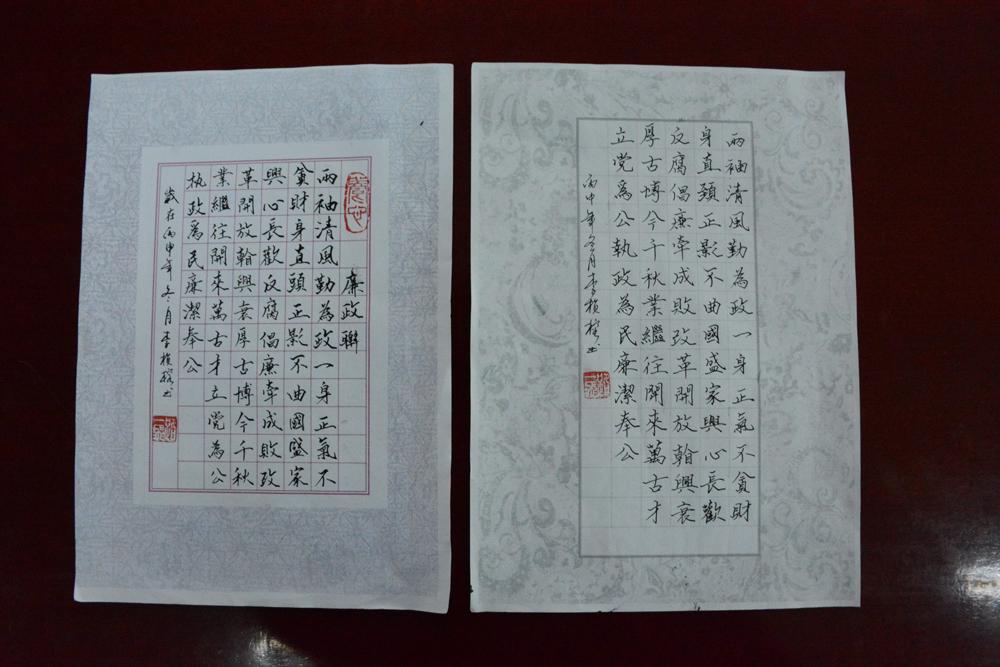 廉政聯
兩袖清風勤為政一身正氣不
貪財身直頭正影不曲國盛家
興心長歡反腐倡廉牽成敗改
革開放翰興衰厚古博今千秋
業繼往開來萬古才立党為公
执政爲民廉潔奉公
歲在丙申年冬月李
兩袖清風勤為政一身正氣不貪財
身直頭正影不曲國盛家興心長歡
反腐倡廉牽成敗改革開放翰興衰
厚古博今千秋業繼往開來萬古才
立党爲公執政為民廉潔奉公
丙申年冬月李